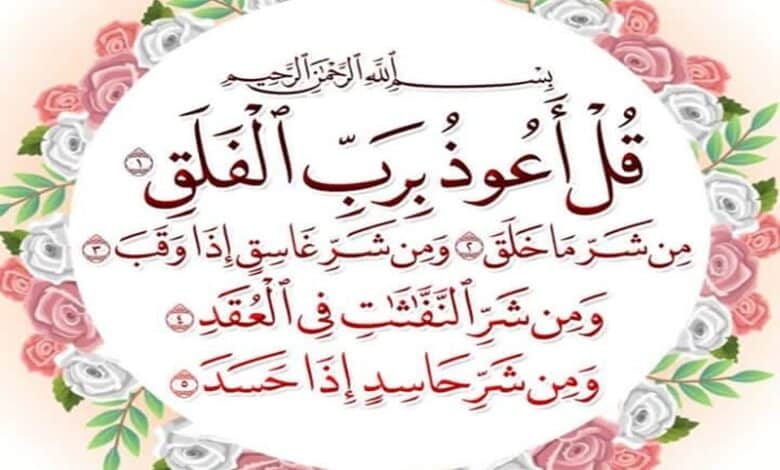 بِسْمِ ٱللَّهِ ٱلرَّحْمَٰنِ ٱلرَّحِيمِ
قُلْ أَعُوذُ بِرَبِّ ٱلْفَلَقِ ١
مِن شَرِّ مَا خَلَقَ ٢ وَمِن شَرِّ غَاسِقٍ إِذَا وَقَبَ ٣
وَمِن شَرِّ ٱلنَّفَّٰثَٰتِ فِى ٱلْعُقَدِ ٤
وَمِن شَرِّ حَاسِدٍ إِذَا حَسَدَ ٥